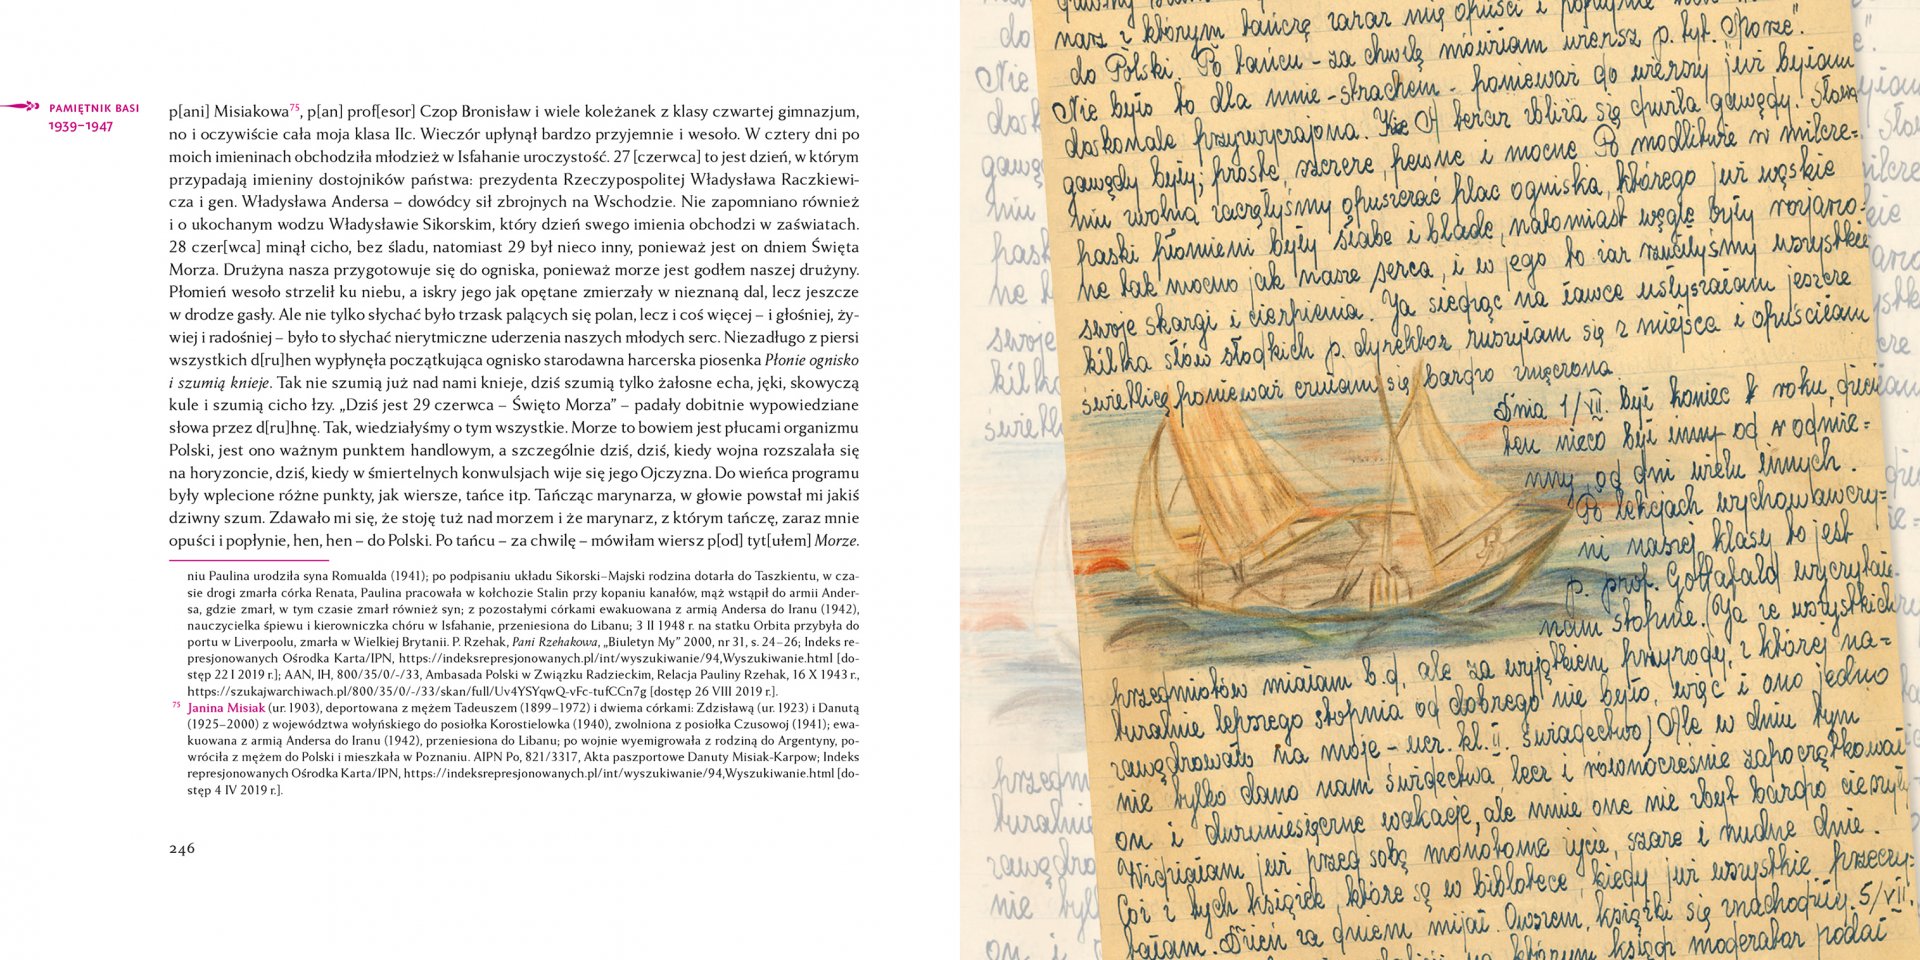 PAMIĘTNIK BASI
1939–1947
p[ani] Misiakowa75, p[an] prof[esor] Czop Bronisław i wiele koleżanek z klasy czwartej gimnazjum,
no i oczywiście cała moja klasa IIc. Wieczór upłynął bardzo przyjemnie i wesoło. W cztery dni po
moich imieninach obchodziła młodzież w Isfahanie uroczystość. 27 [czerwca] to jest dzień, w którym
przypadają imieniny dostojników państwa: prezydenta Rzeczypospolitej Władysława Raczkiewi-
cza i gen. Władysława Andersa – dowódcy sił zbrojnych na Wschodzie. Nie zapomniano również
i o ukochanym wodzu Władysławie Sikorskim, który dzień swego imienia obchodzi w zaświatach.
28 czer[wca] minął cicho, bez śladu, natomiast 29 był nieco inny, ponieważ jest on dniem Święta
Morza. Drużyna nasza przygotowuje się do ogniska, ponieważ morze jest godłem naszej drużyny.
Płomień wesoło strzelił ku niebu, a iskry jego jak opętane zmierzały w nieznaną dal, lecz jeszcze
w drodze gasły. Ale nie tylko słychać było trzask palących się polan, lecz i coś więcej – i głośniej, ży-
wiej i radośniej – było to słychać nierytmiczne uderzenia naszych młodych serc. Niezadługo z piersi
wszystkich d[ru]hen wypłynęła początkująca ognisko starodawna harcerska piosenka Płonie ognisko
i szumią knieje. Tak nie szumią już nad nami knieje, dziś szumią tylko żałosne echa, jęki, skowyczą
kule i szumią cicho łzy. „Dziś jest 29 czerwca – Święto Morza” – padały dobitnie wypowiedziane
słowa przez d[ru]hnę. Tak, wiedziałyśmy o tym wszystkie. Morze to bowiem jest płucami organizmu
Polski, jest ono ważnym punktem handlowym, a szczególnie dziś, dziś, kiedy wojna rozszalała się
na horyzoncie, dziś, kiedy w śmiertelnych konwulsjach wije się jego Ojczyzna. Do wieńca programu
były wplecione różne punkty, jak wiersze, tańce itp. Tańcząc marynarza, w głowie powstał mi jakiś
dziwny szum. Zdawało mi się, że stoję tuż nad morzem i że marynarz, z którym tańczę, zaraz mnie
opuści i popłynie, hen, hen – do Polski. Po tańcu – za chwilę – mówiłam wiersz p[od] tyt[ułem] Morze.
niu Paulina urodziła syna Romualda (1941); po podpisaniu układu Sikorski–Majski rodzina dotarła do Taszkientu, w cza-
sie drogi zmarła córka Renata, Paulina pracowała w kołchozie Stalin przy kopaniu kanałów, mąż wstąpił do armii Ander-
sa, gdzie zmarł, w tym czasie zmarł również syn; z pozostałymi córkami ewakuowana z armią Andersa do Iranu (1942),
nauczycielka śpiewu i kierowniczka chóru w Isfahanie, przeniesiona do Libanu; 3 II 1948 r. na statku Orbita przybyła do
portu w Liverpoolu, zmarła w Wielkiej Brytanii. P. Rzehak, Pani Rzehakowa, „Biuletyn My” 2000, nr 31, s. 24–26; Indeks re-
presjonowanych Ośrodka Karta/IPN, https://indeksrepresjonowanych.pl/int/wyszukiwanie/94,Wyszukiwanie.html [do-
stęp 22 I 2019 r.]; AAN, IH, 800/35/0/-/33, Ambasada Polski w Związku Radzieckim, Relacja Pauliny Rzehak, 16 X 1943 r.,
https://szukajwarchiwach.pl/800/35/0/-/33/skan/full/Uv4YSYqwQ-vFc-tufCCn7g [dostęp 26 VIII 2019 r.].
75 Janina Misiak (ur. 1903), deportowana z mężem Tadeuszem (1899–1972) i dwiema córkami: Zdzisławą (ur. 1923) i Danutą
(1925–2000) z województwa wołyńskiego do posiołka Korostielowka (1940), zwolniona z posiołka Czusowoj (1941); ewa-
kuowana z armią Andersa do Iranu (1942), przeniesiona do Libanu; po wojnie wyemigrowała z rodziną do Argentyny, po-
wróciła z mężem do Polski i mieszkała w Poznaniu. AIPN Po, 821/3317, Akta paszportowe Danuty Misiak-Karpow; Indeks
represjonowanych Ośrodka Karta/IPN, https://indeksrepresjonowanych.pl/int/wyszukiwanie/94,Wyszukiwanie.html [do-
stęp 4 IV 2019 r.].
246
z którym tańczę zaraz mię opuści i popłynie
do Polski. Po tańcu – za chwilę mówiłam wiersz p. tyt. „Morze.”
Nie było to dla mnie – strachem – ponieważ do wierszy już byłam
doskonale przyzwyczajona. Oł teraz zbliża się chwila gawędy. Słowa
gawędy były; proste, szczere, pewne i mocne Po modlitwie w milcze=
niu zwolna zaczęłyśmy opuszczać plac ogniska, którego już wąskie
paski płomieni były słabe i blade, natomiast węgle były rozjarzo=
ne tak mocno jak nasze serca, i w jego to żar rzuciłyśmy wszystkie
swoje skargi i cierpienia. Ja siedząc na ławce usłyszałam jeszcze
kilka słów słodkich p. dyrektor, ruszyłam się z miejsca i opuściłam
świetlicę, ponieważ czułam się bardzo zmęczona.
Dnia 1/VII. był koniec roku, dzień
ten nieco był inny od
nny, od dni wielu innych.
Po lekcjach wychowawczy=
ni naszej klasy to jest
p. prof. wyczytała
nam stopnie. (Ja ze wszystkich
przedmiotów miałam b.d, ale za wyjątkiem przyrody, z której na=
turalnie lepszego stopnia od dobrego nie było, więc i ono jedno
zawędrowało na moje – ucz. kl. II. świadectwo) Ale w dniu tym
nie tylko dano nam świadectwa, lecz i równocześnie zapoczątkował
on i dwumiesięczne wakacje, ale mnie one nie zbyt bardzo cieszyły
Widziałam już przed sobą monotonne życie, szare i nudne dnie.
Coż z tych książek, które są w bibliotece, kiedy już wszystkie przeczy=
tałam. Dzień za dniem mijał. Owszem, książki się znachodziły. 5/VII.
na którym ksiądz moderator podał